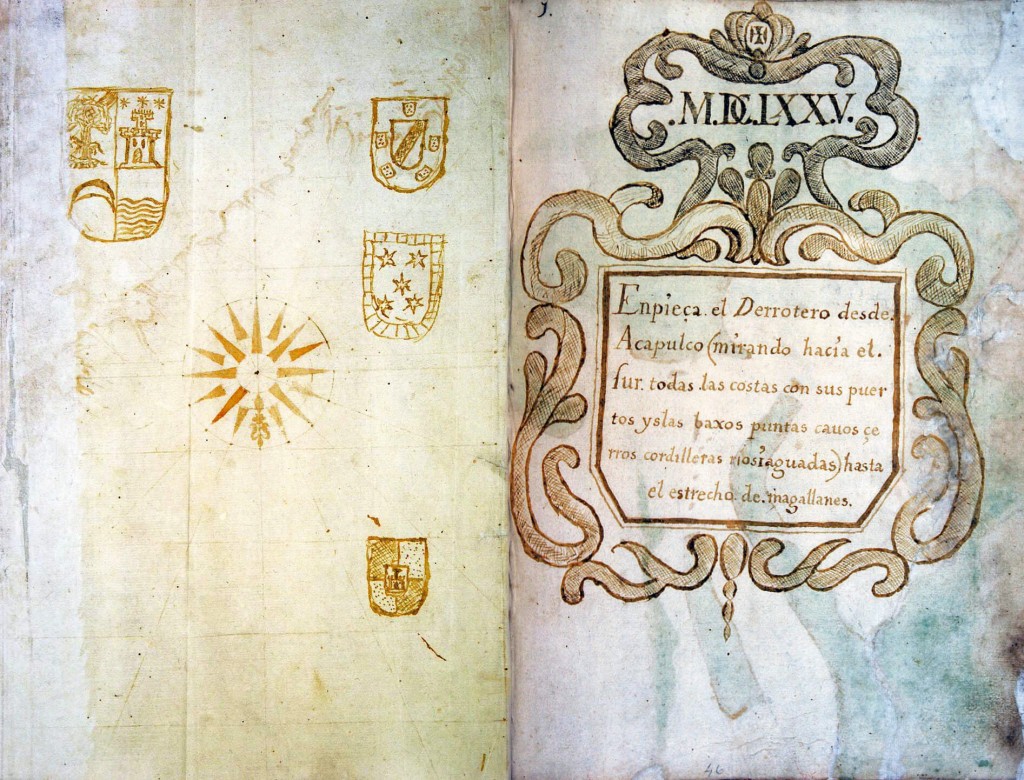 1.
.M.DC.LXXV.
Enpieça el Derrotero desde.
Acapulco (mirando hacia el.
sur. todas las costas con sus puer
tos yslas baxos puntas cauos çe
rros cordilleras rios iaguadas) hasta
el estrecho de magallanes.
46